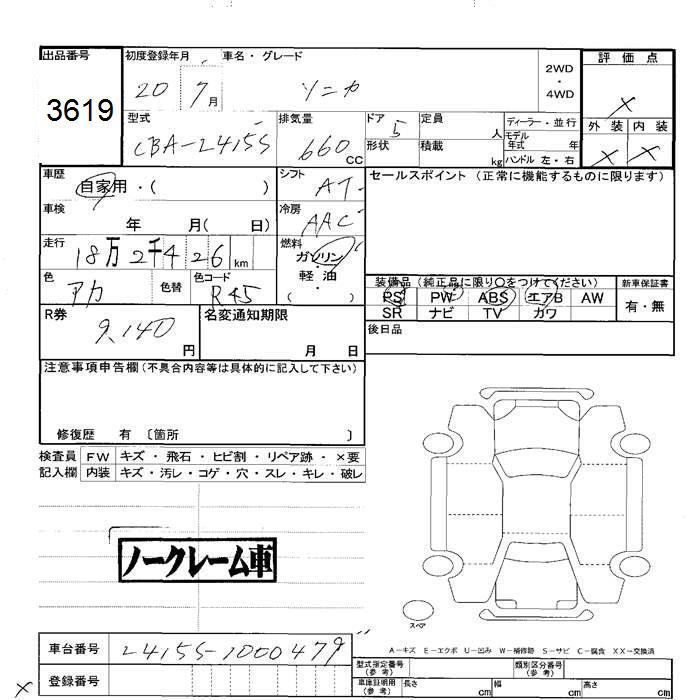 出品番号 初度登録年月 車名・グレード 2WD 評価点
3619 20 7月 ソニカ ・4WD ×
型式 排気量 ドア 定員 ディーラー・並行 外装 内装
CBA-L415S 660CC 5 人 モデル年式 年 × ×
形状 積載 kg ハンドル 左・右
車歴 シフト セールスポイント (正常に機能するものに限ります)
自家用・( ) AT
車検 冷房
年 月( 日) AAC
走行 燃料
18万2千426km ガソリン
色 色替 色コード ・軽油・
アカ R45 ( )
装備品 (純正品に限り○をつけてください) 新車保証書
PS PW ABS エアB AW 有・無
SR ナビ TV カワ
R券 名変通知期限 後日品
9,140円 月 日
注意事項申告欄(不具合内容等は具体的に記入して下さい)
修復歴 有 〔箇所 〕
検査員 FW キズ・飛石・ヒビ割・リペア跡・×要
記入欄 内装 キズ・汚レ・コゲ・穴・スレ・キレ・破レ
ノークレーム車
スペア
A－キズ E－エクボ U－凹み W－補修跡 S－サビ C－腐食 XX－交換済
車台番号 L415S-1000479
型式指定番号(参考) 類別区分番号(参考)
× 登録番号 車庫証明用(参考) 長さ cm 幅 cm 高さ cm